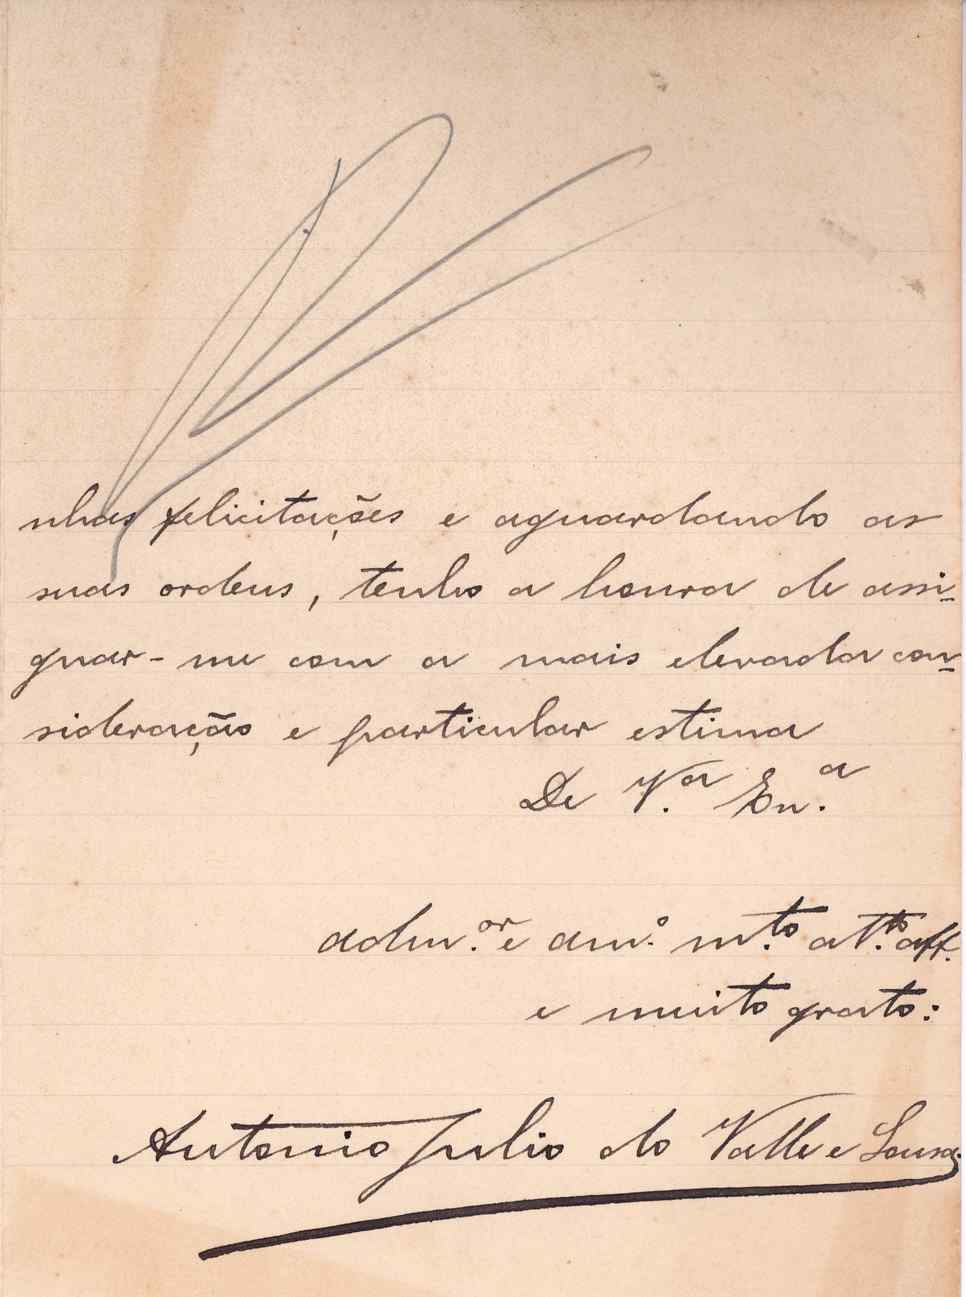 nhas felicitações e aguardando as
suas ordens, tenho a honra de assi-
gnar-me com a mais elevada con-
sideração e particular estima
De V.ª Ex.ª
adm.or e am.º m.to att.to aff.
e muito grato:
Antonio Julio do Valle e Sousa